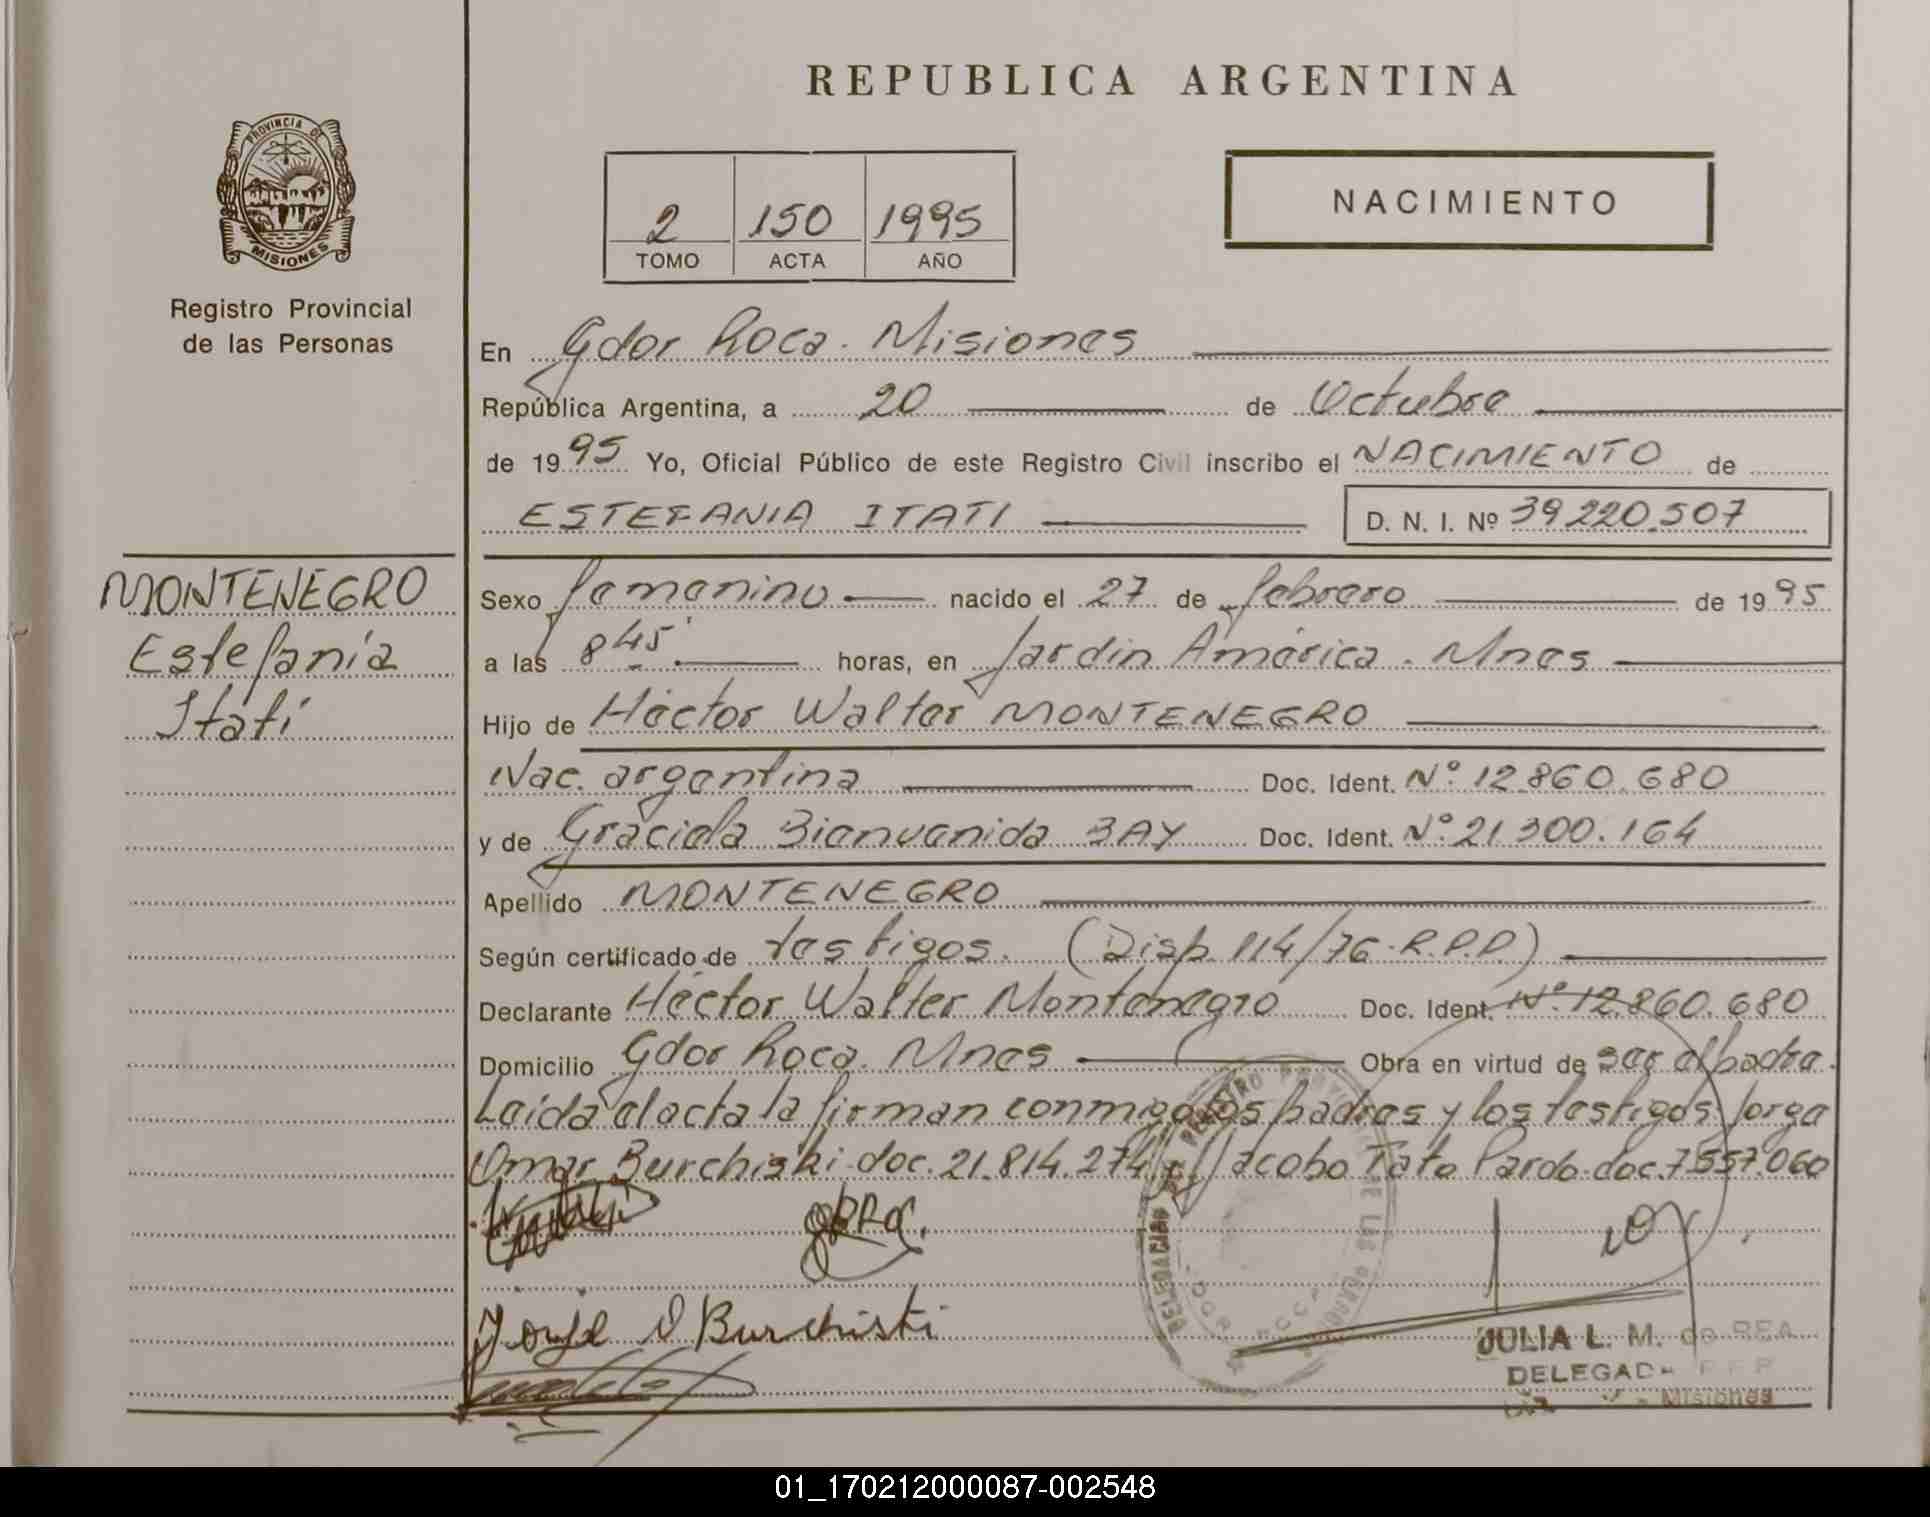 REPUBLICA ARGENTINA
PROVINCIA DE
MISIONES
Registro Provincial
de las Personas
2 150 1995
TOMO ACTA AÑO
NACIMIENTO
En Gdor Roca. Misiones
República Argentina, a 20 de Octubre
de 1995 Yo, Oficial Público de este Registro Civil inscribo el NACIMIENTO de
ESTEFANIA ITATI D. N. I. Nº 39220.507
MONTENEGRO
Estefanía
Itatí
Sexo femenino nacido el 27 de febrero de 1995
a las 8 45' horas, en Jardin América. Mnes
Hijo de Héctor Walter MONTENEGRO
Nac. argentina Doc. Ident. Nº 12.860.680
y de Graciela Bienvenida BAY Doc. Ident. Nº 21.300.164
Apellido MONTENEGRO
Según certificado de testigos. (Disp. 114/76-R.P.P)
Declarante Héctor Walter Montenegro Doc. Ident. Nº 12.860.680
Domicilio Gdor Roca. Mnes Obra en virtud de ser el padre.
Leída el acta la firman conmigo los padres y los testigos: Jorge
Omar Burchiski-doc. 21.814.274 y Jacobo Tato Pardo-doc. 7.557.060
Jorge O Burchiski
JULIA L. M. de REA
DELEGADA R.P.P
Misiones
01_170212000087-002548